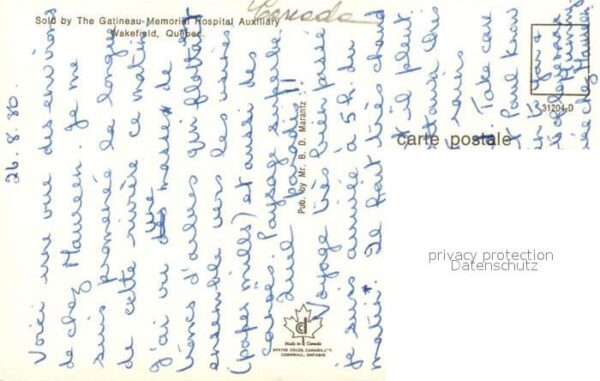 Canada
Sold by The Gatineau Memorial Hospital Auxiliary
Wakefield, Quebec.
26.8.80.
Voici une vue des environs
de chez Maureen. Je me
suis promenée le long
de cette rivière ce matin
J'ai vu une masse de
troncs d'arbres qui flottaient
ensemble vers les usines
(paper mills) et aussi des
canoës. Paysage superbe
Quel paradis!!
Voyage très bien passé
je suis arrivée à 5h. du
matin. Il fait très chaud
et il pleut.
Take care
Paul know
chez Maureen
Pub. by Mr. B. D. Marantz
31204-D
carte postale
Made in Canada
CORNWALL, ONTARIO
privacy protection
Datenschutz